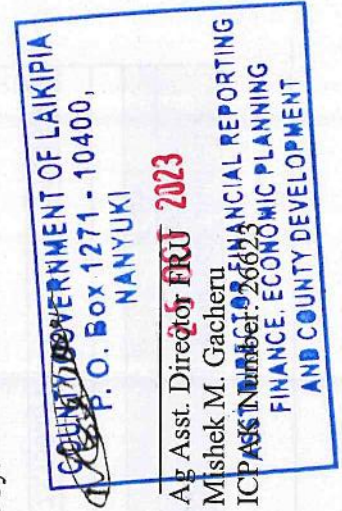 COUNTY GOVERNMENT OF LAIKIPIA
P. O. Box 1271 - 10400,
NANYUKI
2023
Ag Asst. Director FRU
Mishek M. Gacheru
ICPAK Number: 26623
FINANCIAL REPORTING
FINANCE, ECONOMIC PLANNNG
AND COUNTY DEVELOPMENT